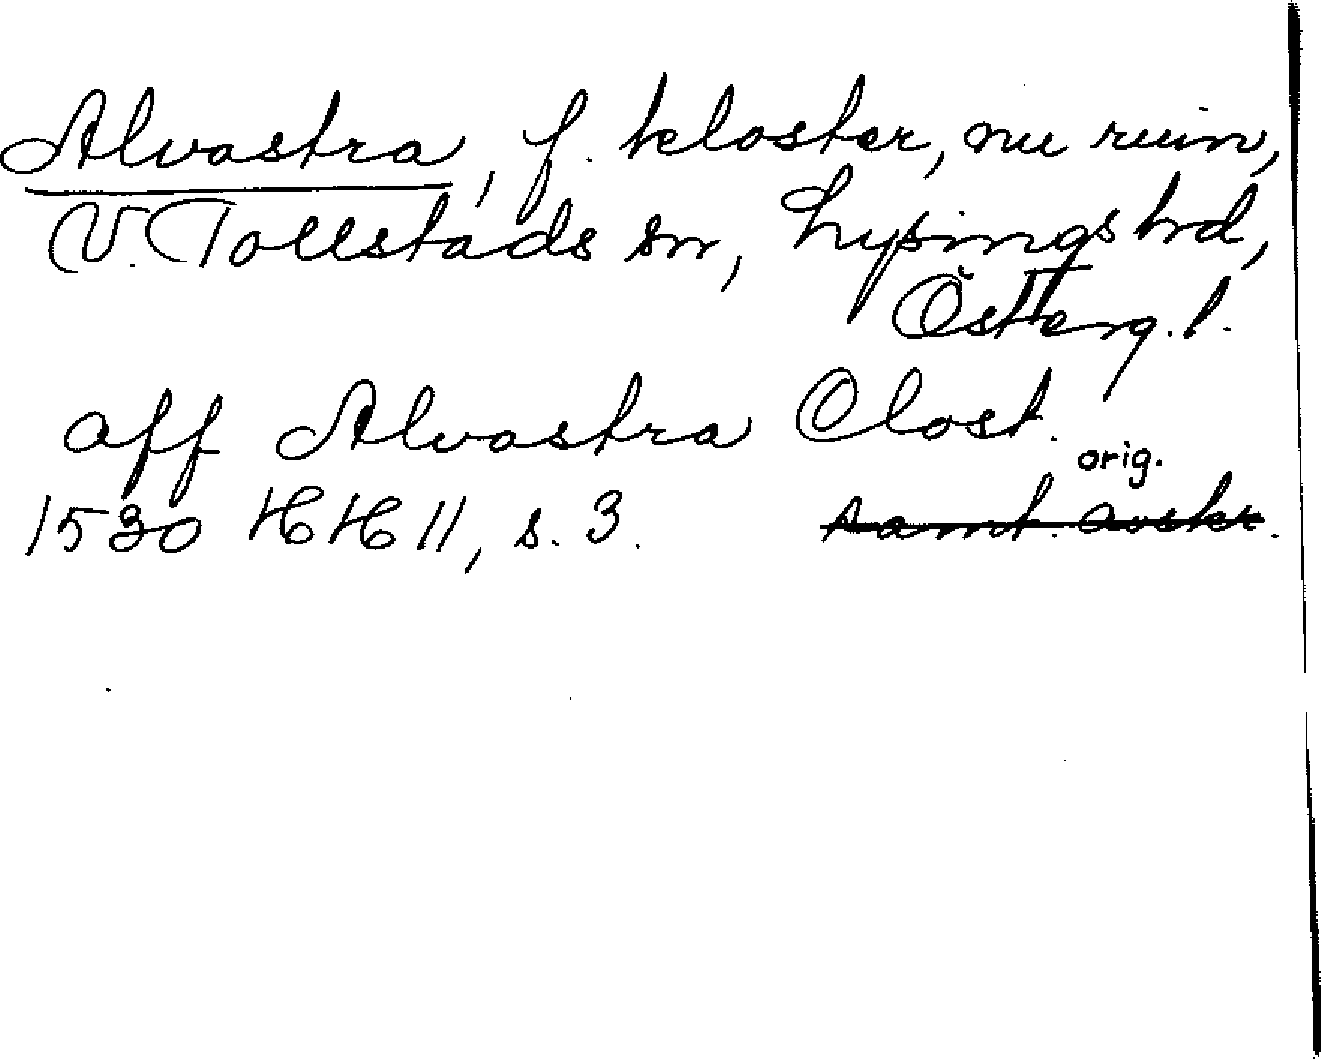 Alvastra, f. kloster, nu ruin,
V. Tollstads sn, Lysings hd,
Österg. l.
aff Alvastra Clost.
orig.
1530 HH 11, s. 3. samt. avskr.